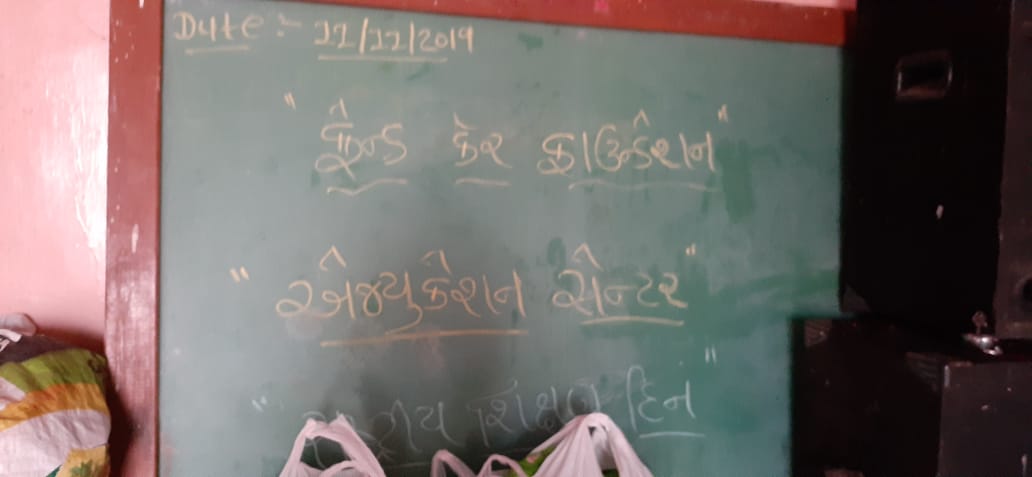 Date :- 11/11/2019
" ફ્રેન્ડ કેર ફાઉન્ડેશન "
" એજ્યુકેશન સેન્ટર "
" રાષ્ટ્રીય શિક્ષણ દિન "